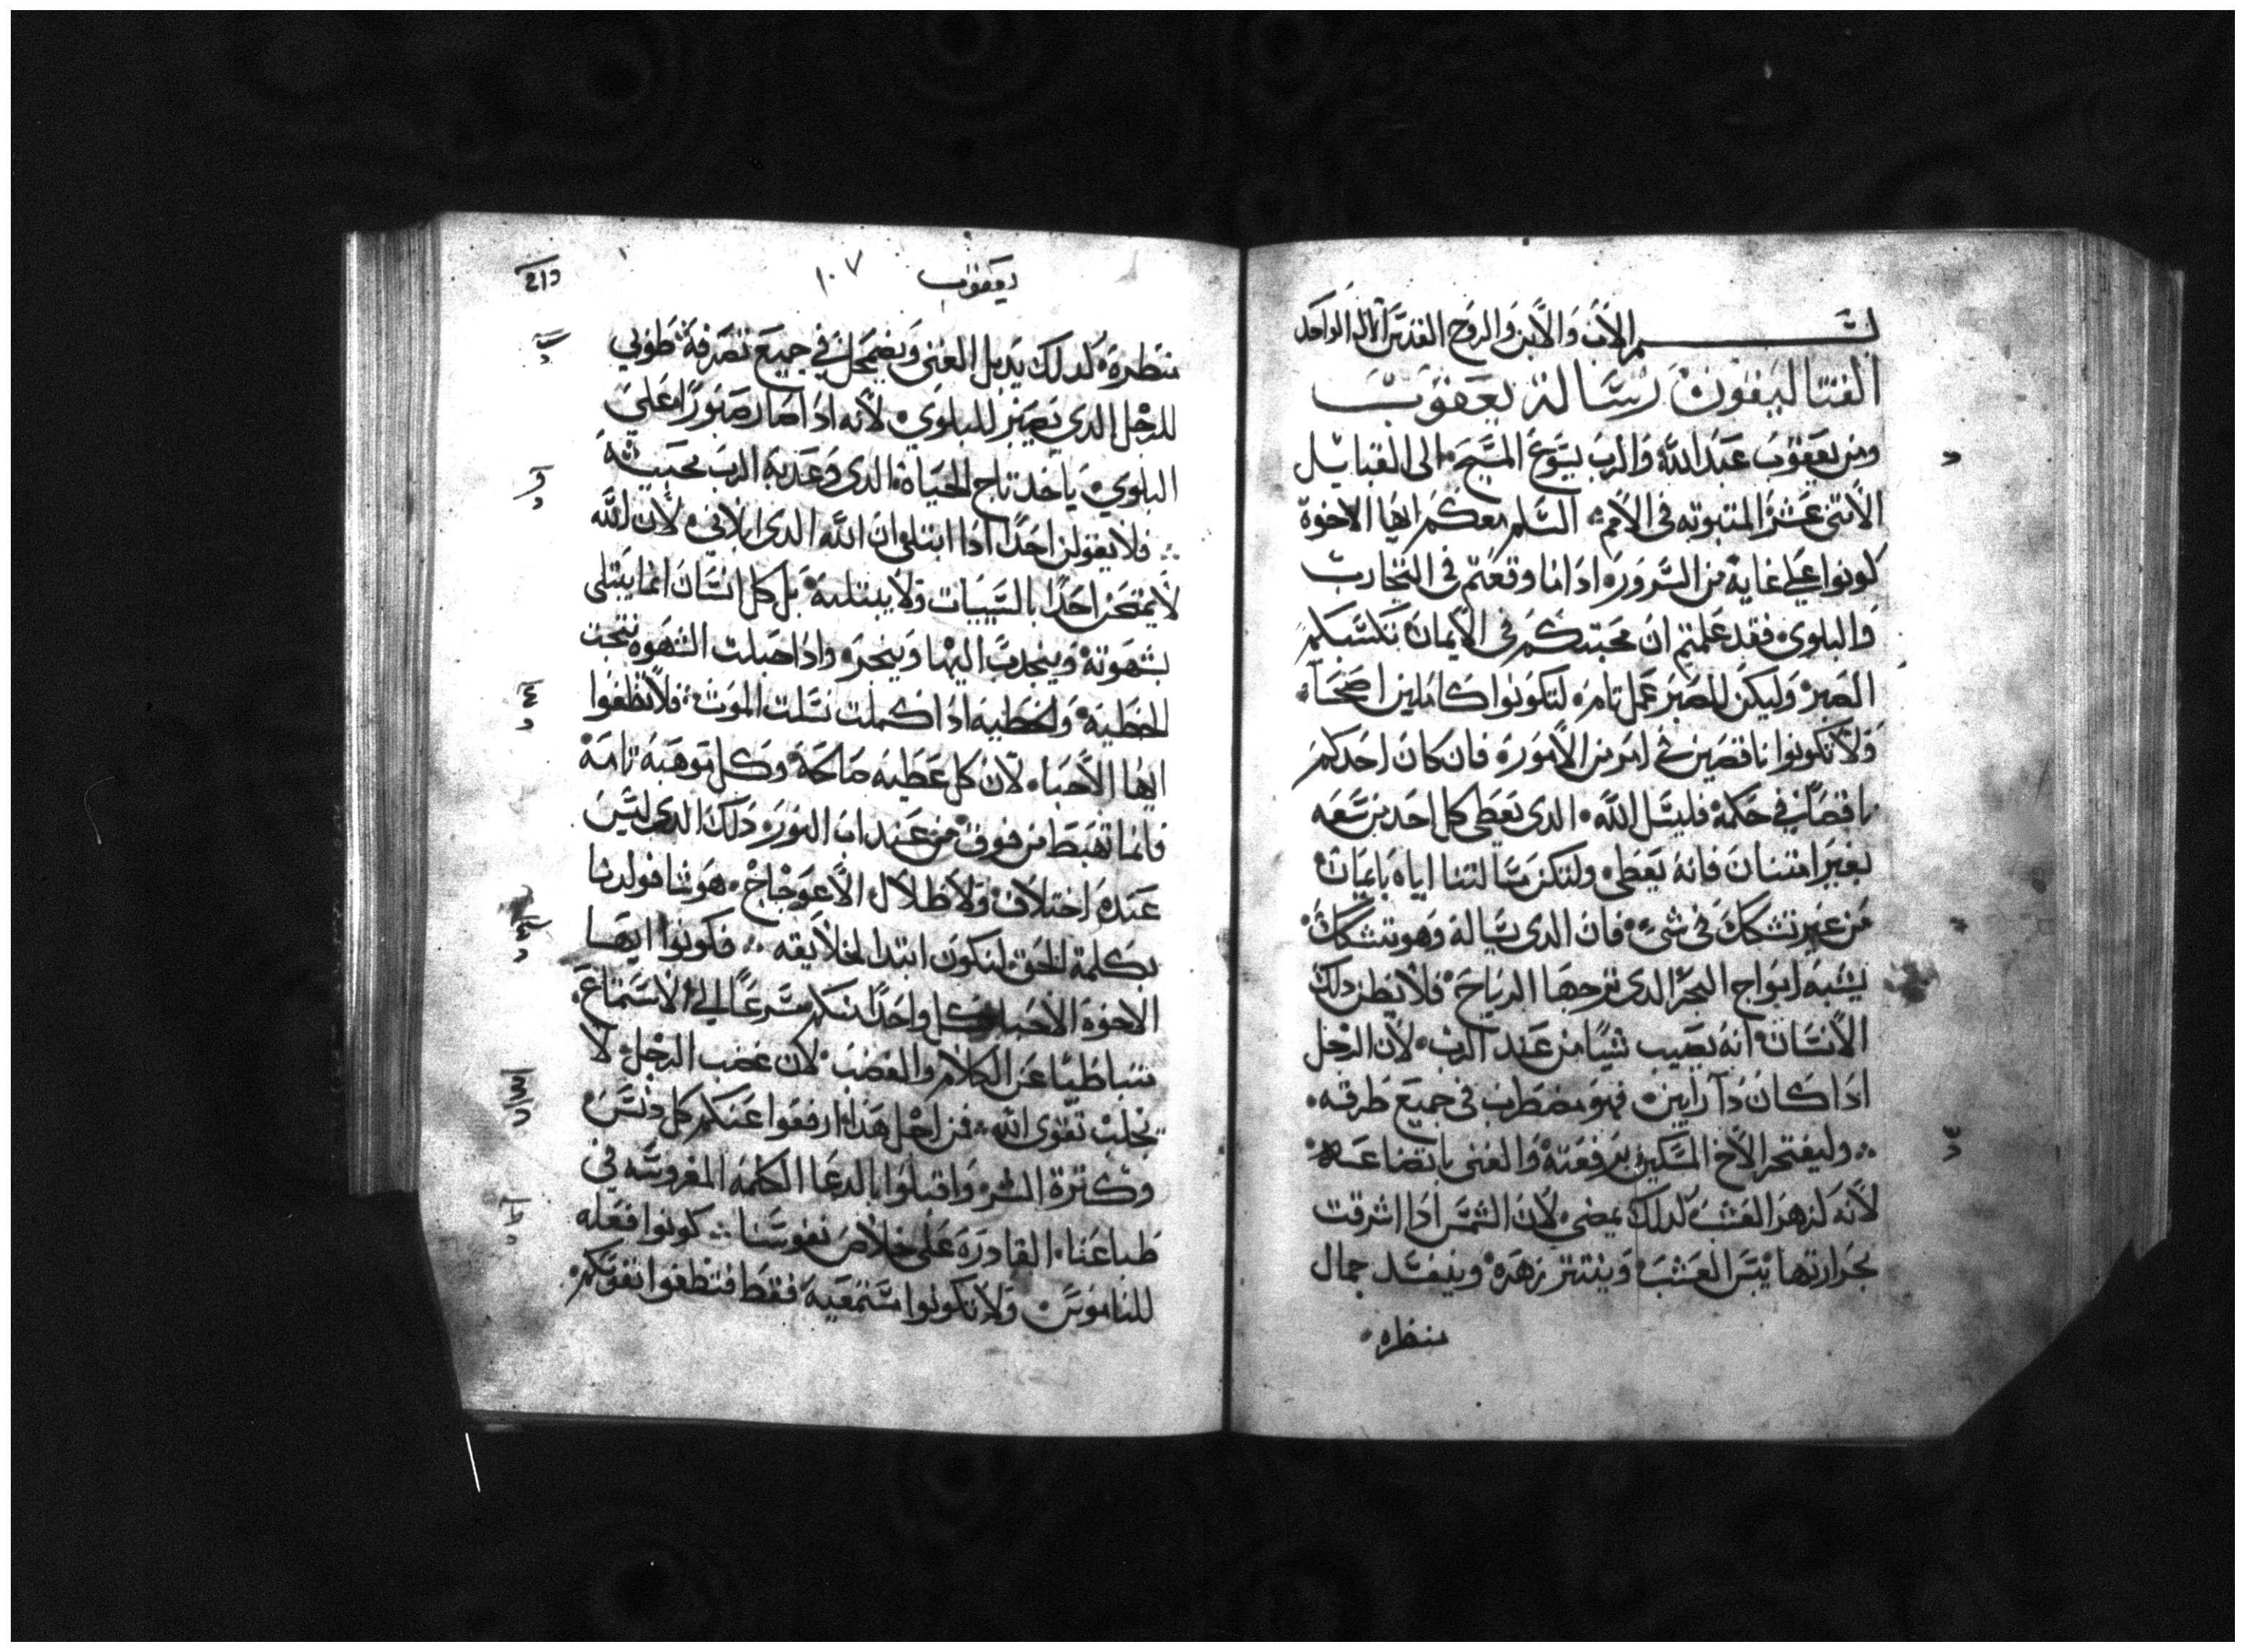 بسم الاب والابن والروح القدس الاله الواحد
القتاليقون رسالة يعقوب
ومن يعقوب عبد الله والرب يسوع المسيح الى القبايل
الاتنى عشر المتبوته فى الامم السلم معكم ايها الاخوة
كونوا على غاية من السرور ادا ما وقعتم فى التجارب
والبلوى فقد علمتم ان محبتكم فى الايمان تكسبكم
الصبر وليكن للصبر عمل تام لتكونوا كاملين اصحا
ولا تكونوا ناقصين فى امر من الامور فان كان احدكم
ناقصا فى حكمة فليسل الله الدى يعطى كل احد من سعه
بغير امتنان فانه يعطى ولتكن مسالتنا اياه بايمان
من غير تشكك فى شى فان الدى يساله وهو يتشكك
يشبه امواج البحر الدى تزجها الرياح فلا يظن دلك
الانسان انه يصيب شيا من عند الرب لان الرجل
ادا كان دا رايين فهو مضطرب فى جميع طرقه
وليفتخر الاخ المسكين برفعته والغنى باتضاعه
لانه لزهر العشب كدلك يمضى لان الشمس ادا اشرقت
بحرارتها يبس العشب وينتتر زهره وينفسد جمال
منظره
يعقوب
١٠٧
منظره كدلك يدبل الغنى ويضمحل فى جميع تصرفه طوبى
للرجل الدى يصبر للبلوى لانه ادا صار صبورا على
البلوى ياخد تاج الحياة الدى وعد به الرب محبيه
فلا يقولن احدا ادا ابتلى ان الله الدى ابلانى لان الله
لا يمتحن احدا بالسييات ولا يبتليه بل كل انسان انما يبتلى
بشهوته وينجدب اليها وينجر وادا حبلت الشهوه نتجت
الخطية والخطيه ادا كملت نسلت الموت فلا تظغوا
ايها الاحبا لان كل عطيه صالحة وكل موهبه تامة
فانما تهبط من فوق من عند اب النور دلك الدى ليس
عنده اختلاف ولا ظلال الاعوجاج هو شا فولدنا
بكلمة الحق لنكون ابتدا لخلايقه فكونوا ايها
الاخوة الاحبا كل واحدا منكم مسرعا الى الاستماع
متباطيا عن الكلام والغضب لان غضب الرجل لا
يجلب تقوى الله فمن اجل هدا ارفعوا عنكم كل دنس
وكترة الشر واقبلوا بالدعا الكلمة المغروسه فى
طباعنا القادرة على خلاص نفوسنا كونوا فعله
للناموس ولا تكونوا مستمعيه فقط فتظغوا نفوسكم